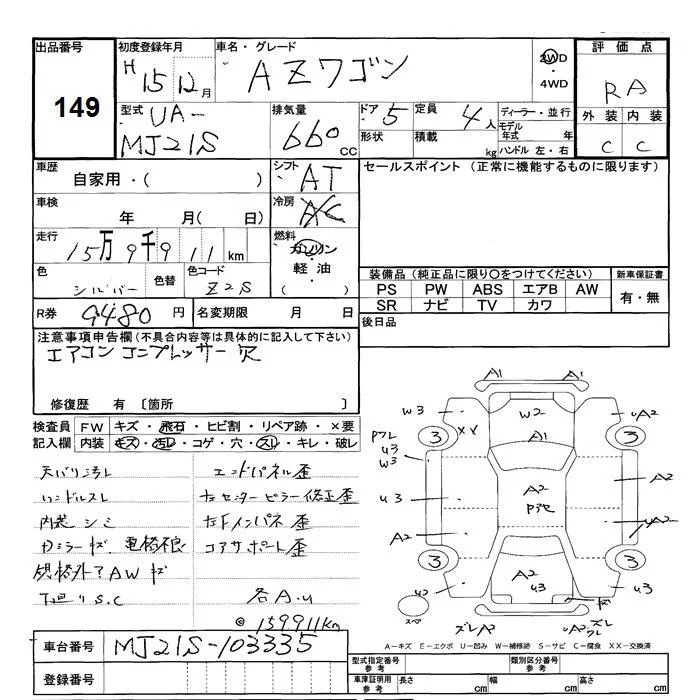 出品番号 初度登録年月 車名・グレード 評価点
149
H 15 12月 AZワゴン 2WD・4WD RA
型式 UA-MJ21S 排気量 660cc ドア 5 定員 4人 ディーラー・並行
形状 積載 kg モデル年式 年 ハンドル 左・右
外装 内装
C C
車歴 自家用・( ) シフト AT セールスポイント (正常に機能するものに限ります)
車検 年 月( 日) 冷房 AC
走行 15万9千911km 燃料 ガソリン・軽油・( )
色 シルバー 色替 色コード Z2S
装備品 (純正品に限り○をつけてください) 新車保証書
PS PW ABS エアB AW 有・無
SR ナビ TV カワ
R券 9480円 名変期限 月 日 後日品
注意事項申告欄(不具合内容等は具体的に記入して下さい)
エアコンコンプレッサー欠
修復歴 有 〔箇所 〕
検査員 FW キズ・飛石・ヒビ割・リペア跡・×要
記入欄 内装 キズ・汚れ・コゲ・穴・スレ・キレ・破レ
天バリ汚レ エンドパネル歪
ハンドルスレ 左センターピラー修正歪
内装シミ 左Fインパネ歪
コアサポート歪
規格外アAWキズ
下廻りS.C 各A.U
◎159911km
A1 A1
W3 W2 A2
XX
3 A1 3
U3
W3
A2 A2
U3
A2 A2
3 3
A2
U3 U3
スペア
ズレA2 A2
A-キズ E-エクボ U-凹み W-補修跡 S-サビ C-腐食 XX-交換済
車台番号 MJ21S-103335
登録番号
型式指定番号 参考 類別区分番号 参考
車庫証明用 参考 長さ cm 幅 cm 高さ cm